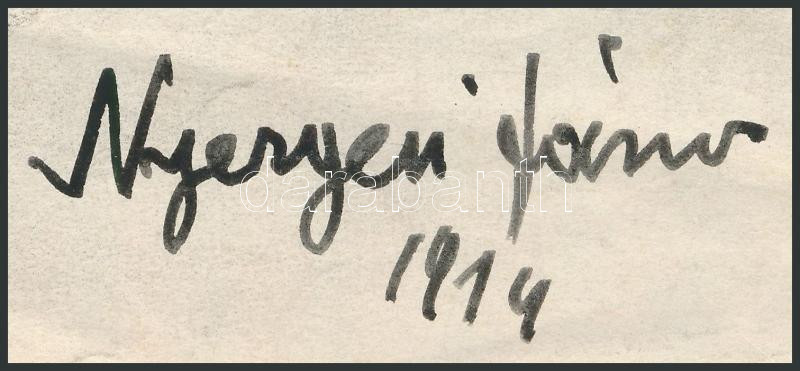 Nyergesi János
1914
darabanth